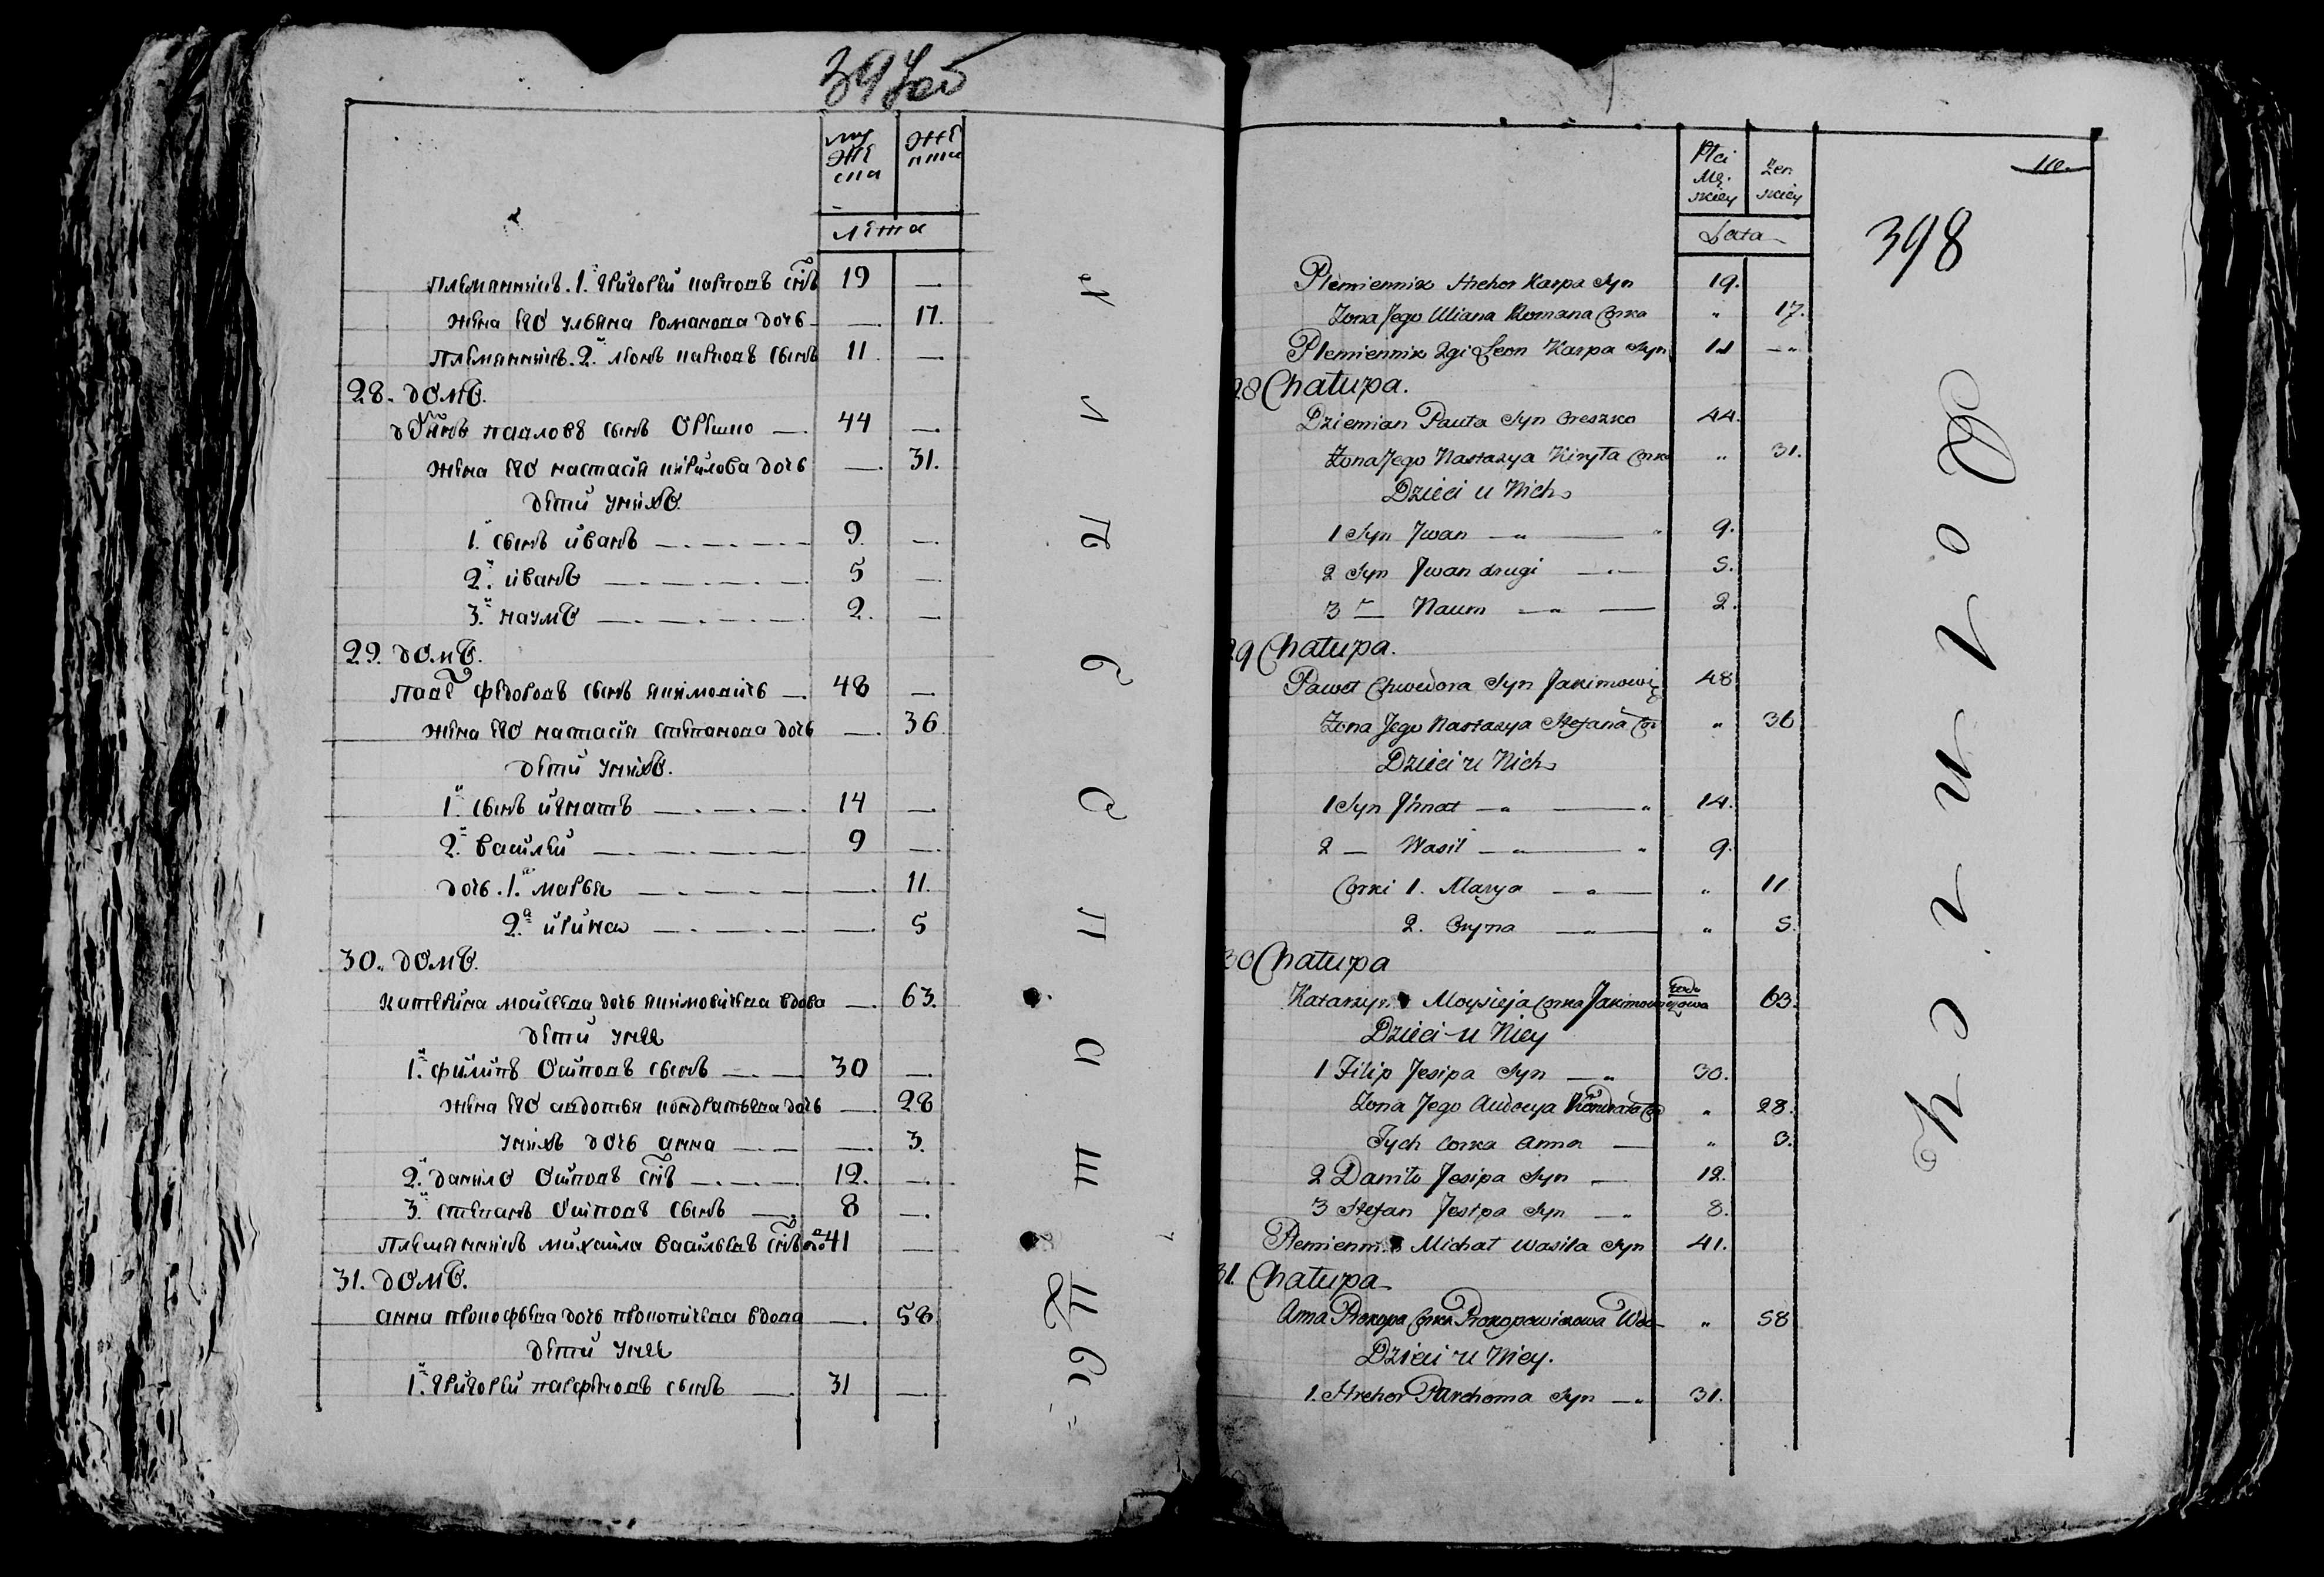 397об
мужеска
женска
лѣта
племянникъ 1й григорей карповъ снъ 19 —
жена его ульяна романова дочь — 17.
племянникъ 2й леонъ карповъ сынъ 11 —
28. домъ.
павловъ сынъ орешко — 44 —
жена его настасія кирилова дочь — 31.
дети унихъ
1й сынъ иванъ — 9. —
2й иванъ — 5 —
3й наумъ — 2. —
29. домъ.
павелъ федоровъ сынъ якимовичь — 48 —
жена его настасія степанова дочь — 36
дети унихъ.
1й сынъ игнатъ — 14 —
2й василей — 9 —
дочь 1я марья — 11.
2я ирина — 5
30. домъ.
катерина моисеева дочь якимовичева вдова — 63.
дети унее
1й филипъ осиповъ сынъ — 30 —
жена его авдотья кондратьева дочь — 28
унихъ дочь анна — 3.
2й данило осиповъ снъ — 12. —
3й степанъ осиповъ сынъ — 8 —
племянникъ михайла васильевъ снъ 41 —
31. домъ.
анна прокофьева дочь прокопичева вдова — 58
дети унее
1й григорей парфеновъ сынъ — 31 —
Płci Mę. skiey
Zen skiey
Lata
398
Plemiennik Hrehor Karpa Syn 19.
Zona Jego Uliana Romana Corka " 17.
Plemiennik 2gi Leon Karpa Syn 11 — "
28 Chałupa.
Dziemian Pauła Syn Oreszko 44.
Zona Jego Nastazya Kiryła Corka " 31.
Dzieci u Nich
1 Syn Jwan — " — " 9.
2 Syn Jwan drugi — " — 5.
3 — Naum — " — 2.
29 Chałupa.
Paweł Chwedora Syn Jakimowicz 48
Zona Jego Nastazya Stefana Cor " 36
Dzieci u Nich
1 Syn Jhnat — " — " 14.
2 — Wasil — " — " 9.
Corki 1. Marya — " — " 11
2. Oryna — " — " 5.
30 Chałupa
Katarzyna Moysieja Corka Jakimowiczowa Wdo 63.
Dzieci u Niey
1 Filip Jesipa Syn — " 30.
Zona Jego Audocya Kondrata Cor " 28.
Tych Corka Anna — " 3.
2 Daniło Jesipa Syn — 12.
3 Stefan Jesipa Syn — " 8.
Plemiennik Michał Wasila Syn 41.
31. Chałupa
Anna Prokopa Corka Prokopowiczowa Wdo " 58
Dzieci u Niey.
1. Hrehor Parchoma Syn — " 31.